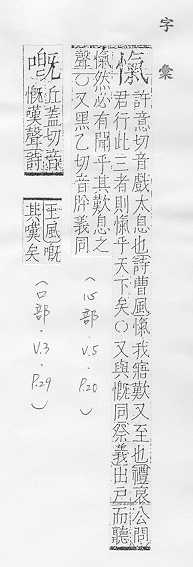 字彙
愾
許意切音戲太息也詩曹風愾我寤歎又至也禮哀公問
君行此三者則愾乎天下矣○又與慨同祭義出戶而聽
愾然必有聞乎其歎息之
聲○又黑乙切音肸義同
(心部.V.5
P.20)
嘅
丘蓋切
慨嘆聲詩
王風嘅
其嘆矣
(口部.V.3
P.29)